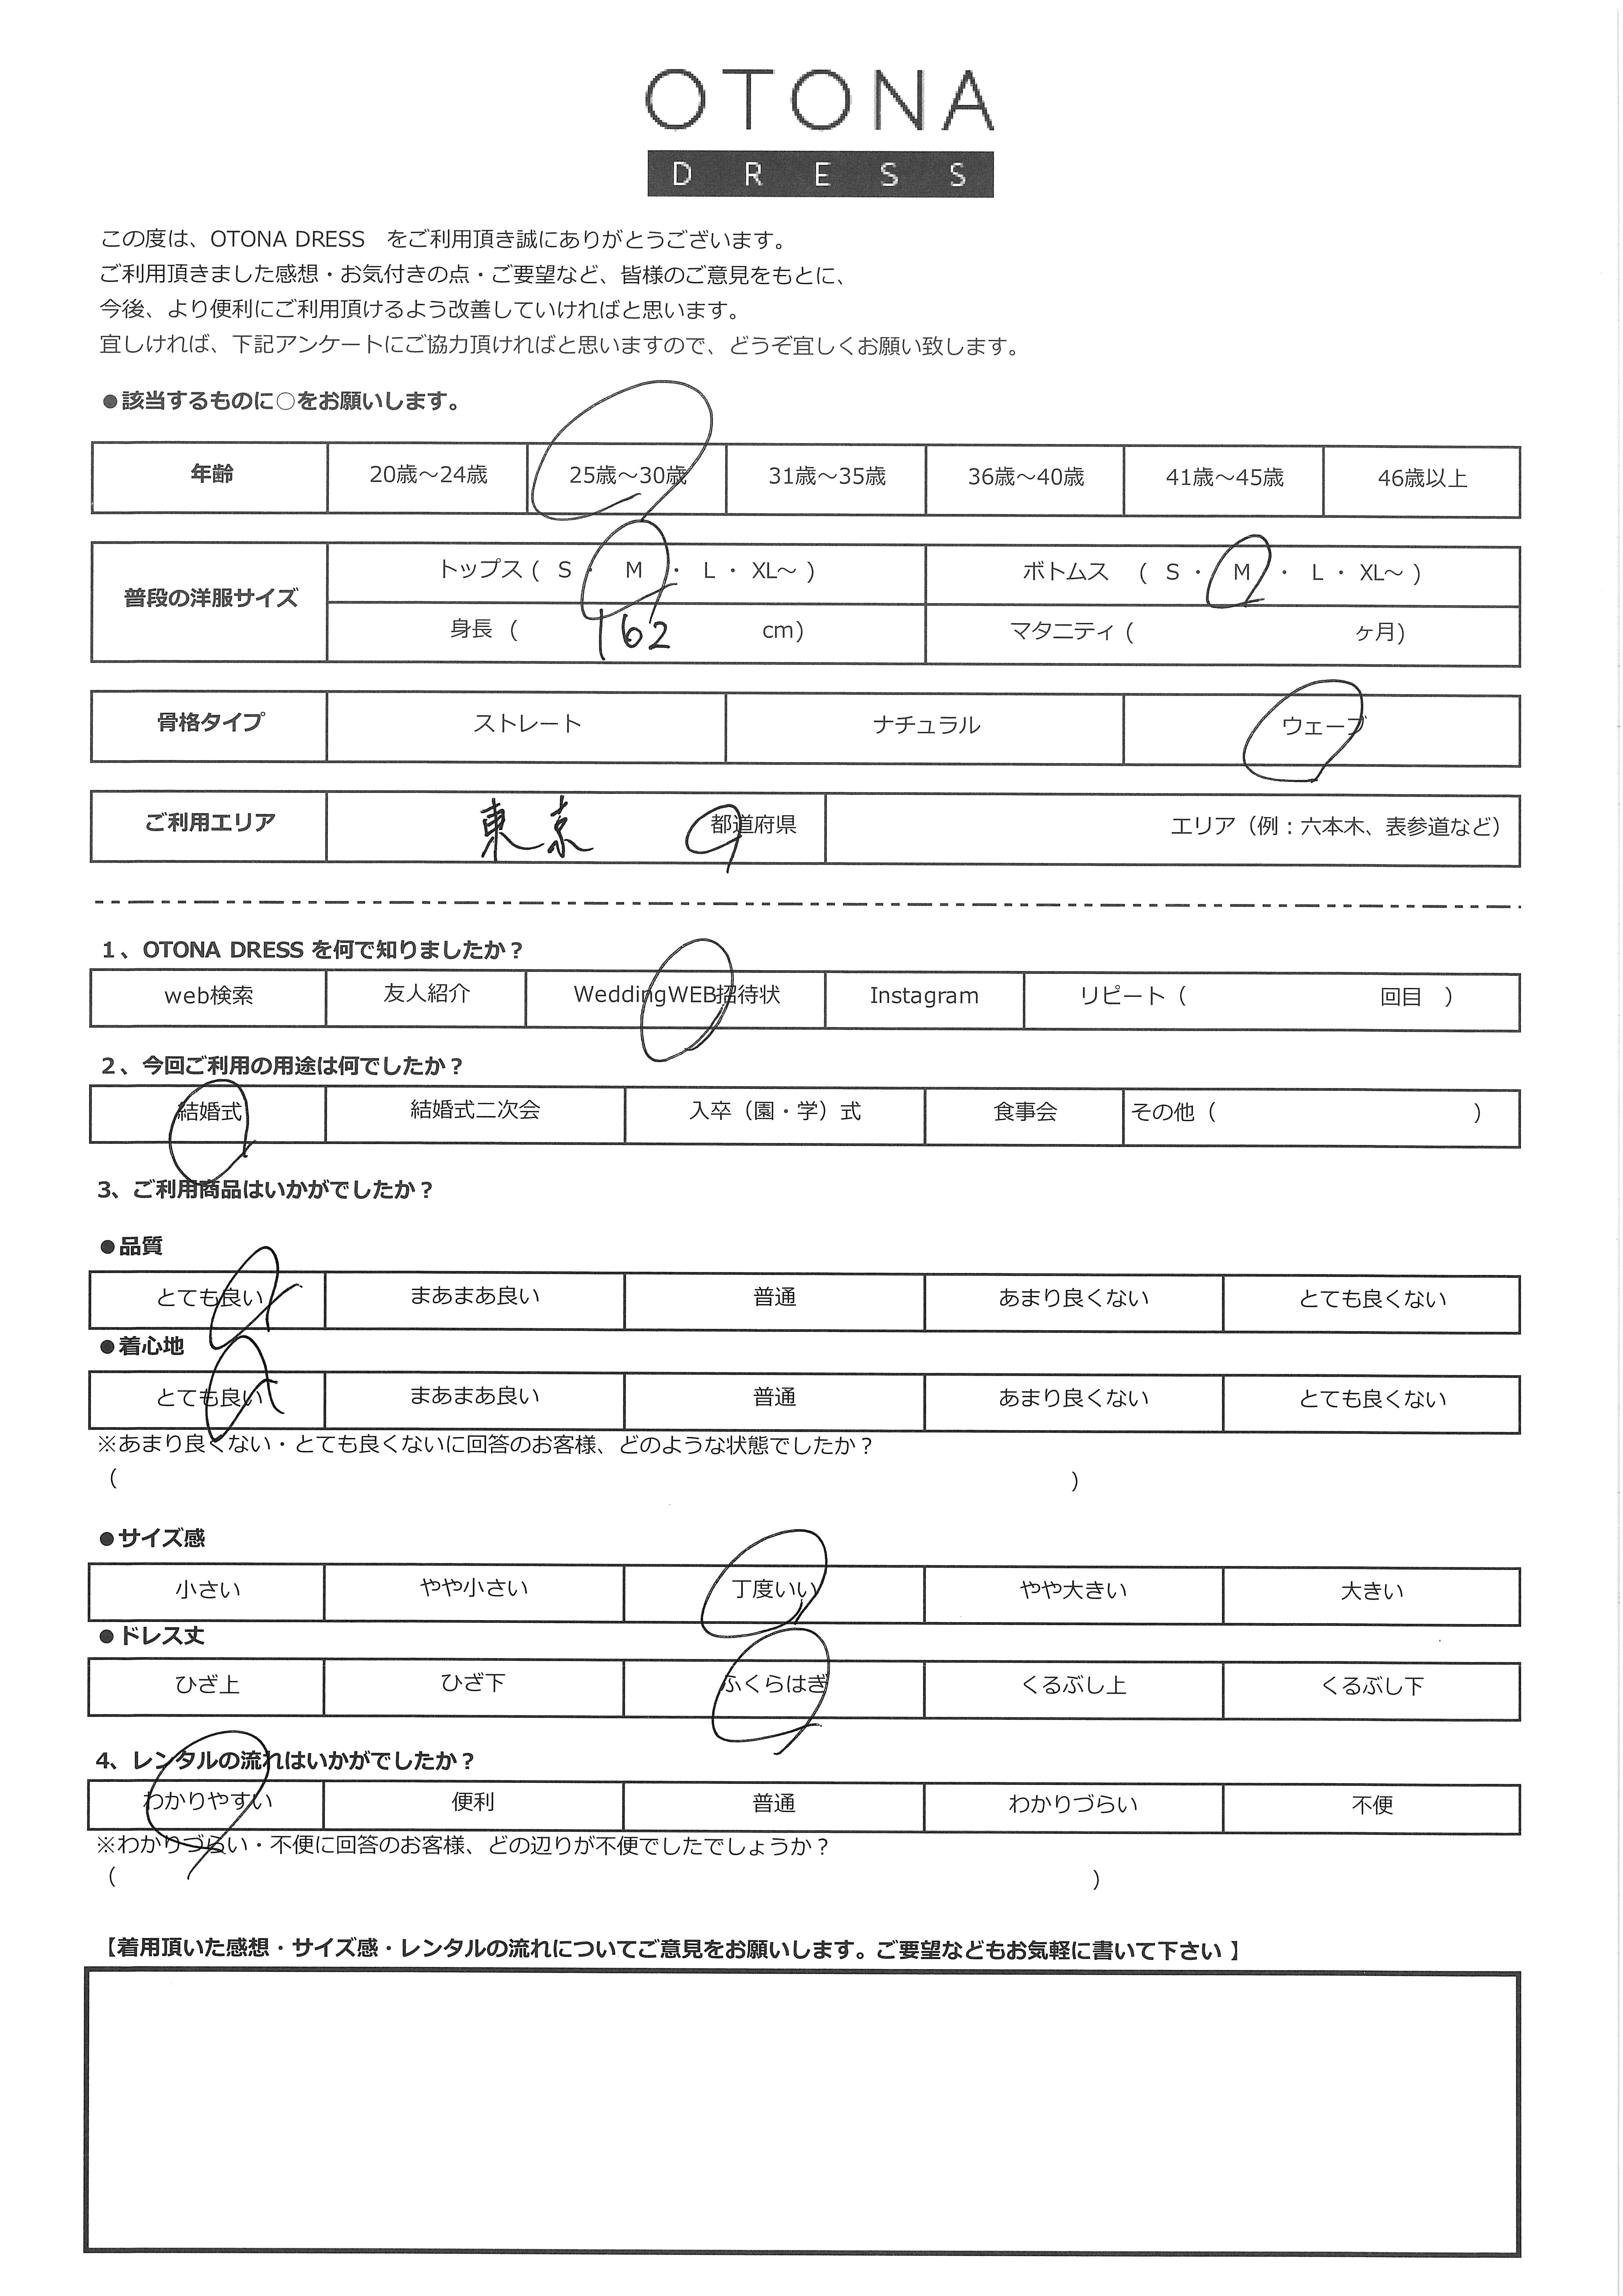 OTONA
DRESS
この度は、OTONA DRESS　をご利用頂き誠にありがとうございます。
ご利用頂きました感想・お気付きの点・ご要望など、皆様のご意見をもとに、
今後、より便利にご利用頂けるよう改善していければと思います。
宜しければ、下記アンケートにご協力頂ければと思いますので、どうぞ宜しくお願い致します。
●該当するものに○をお願いします。
年齢 20歳～24歳 25歳～30歳 31歳～35歳 36歳～40歳 41歳～45歳 46歳以上
普段の洋服サイズ トップス ( S ・ M ・ L ・ XL～ ) ボトムス ( S ・ M ・ L ・ XL～ )
身長 ( 162 cm) マタニティ ( ヶ月)
骨格タイプ ストレート ナチュラル ウェーブ
ご利用エリア 東京 都道府県 エリア（例：六本木、表参道など）
1、OTONA DRESS を何で知りましたか？
web検索 友人紹介 WeddingWEB招待状 Instagram リピート（ 回目 ）
2、今回ご利用の用途は何でしたか？
結婚式 結婚式二次会 入卒（園・学）式 食事会 その他（ ）
3、ご利用商品はいかがでしたか？
●品質
とても良い まあまあ良い 普通 あまり良くない とても良くない
●着心地
とても良い まあまあ良い 普通 あまり良くない とても良くない
※あまり良くない・とても良くないに回答のお客様、どのような状態でしたか？
（ ）
●サイズ感
小さい やや小さい 丁度いい やや大きい 大きい
●ドレス丈
ひざ上 ひざ下 ふくらはぎ くるぶし上 くるぶし下
4、レンタルの流れはいかがでしたか？
わかりやすい 便利 普通 わかりづらい 不便
※わかりづらい・不便に回答のお客様、どの辺りが不便でしたでしょうか？
（ ）
【着用頂いた感想・サイズ感・レンタルの流れについてご意見をお願いします。ご要望などもお気軽に書いて下さい 】